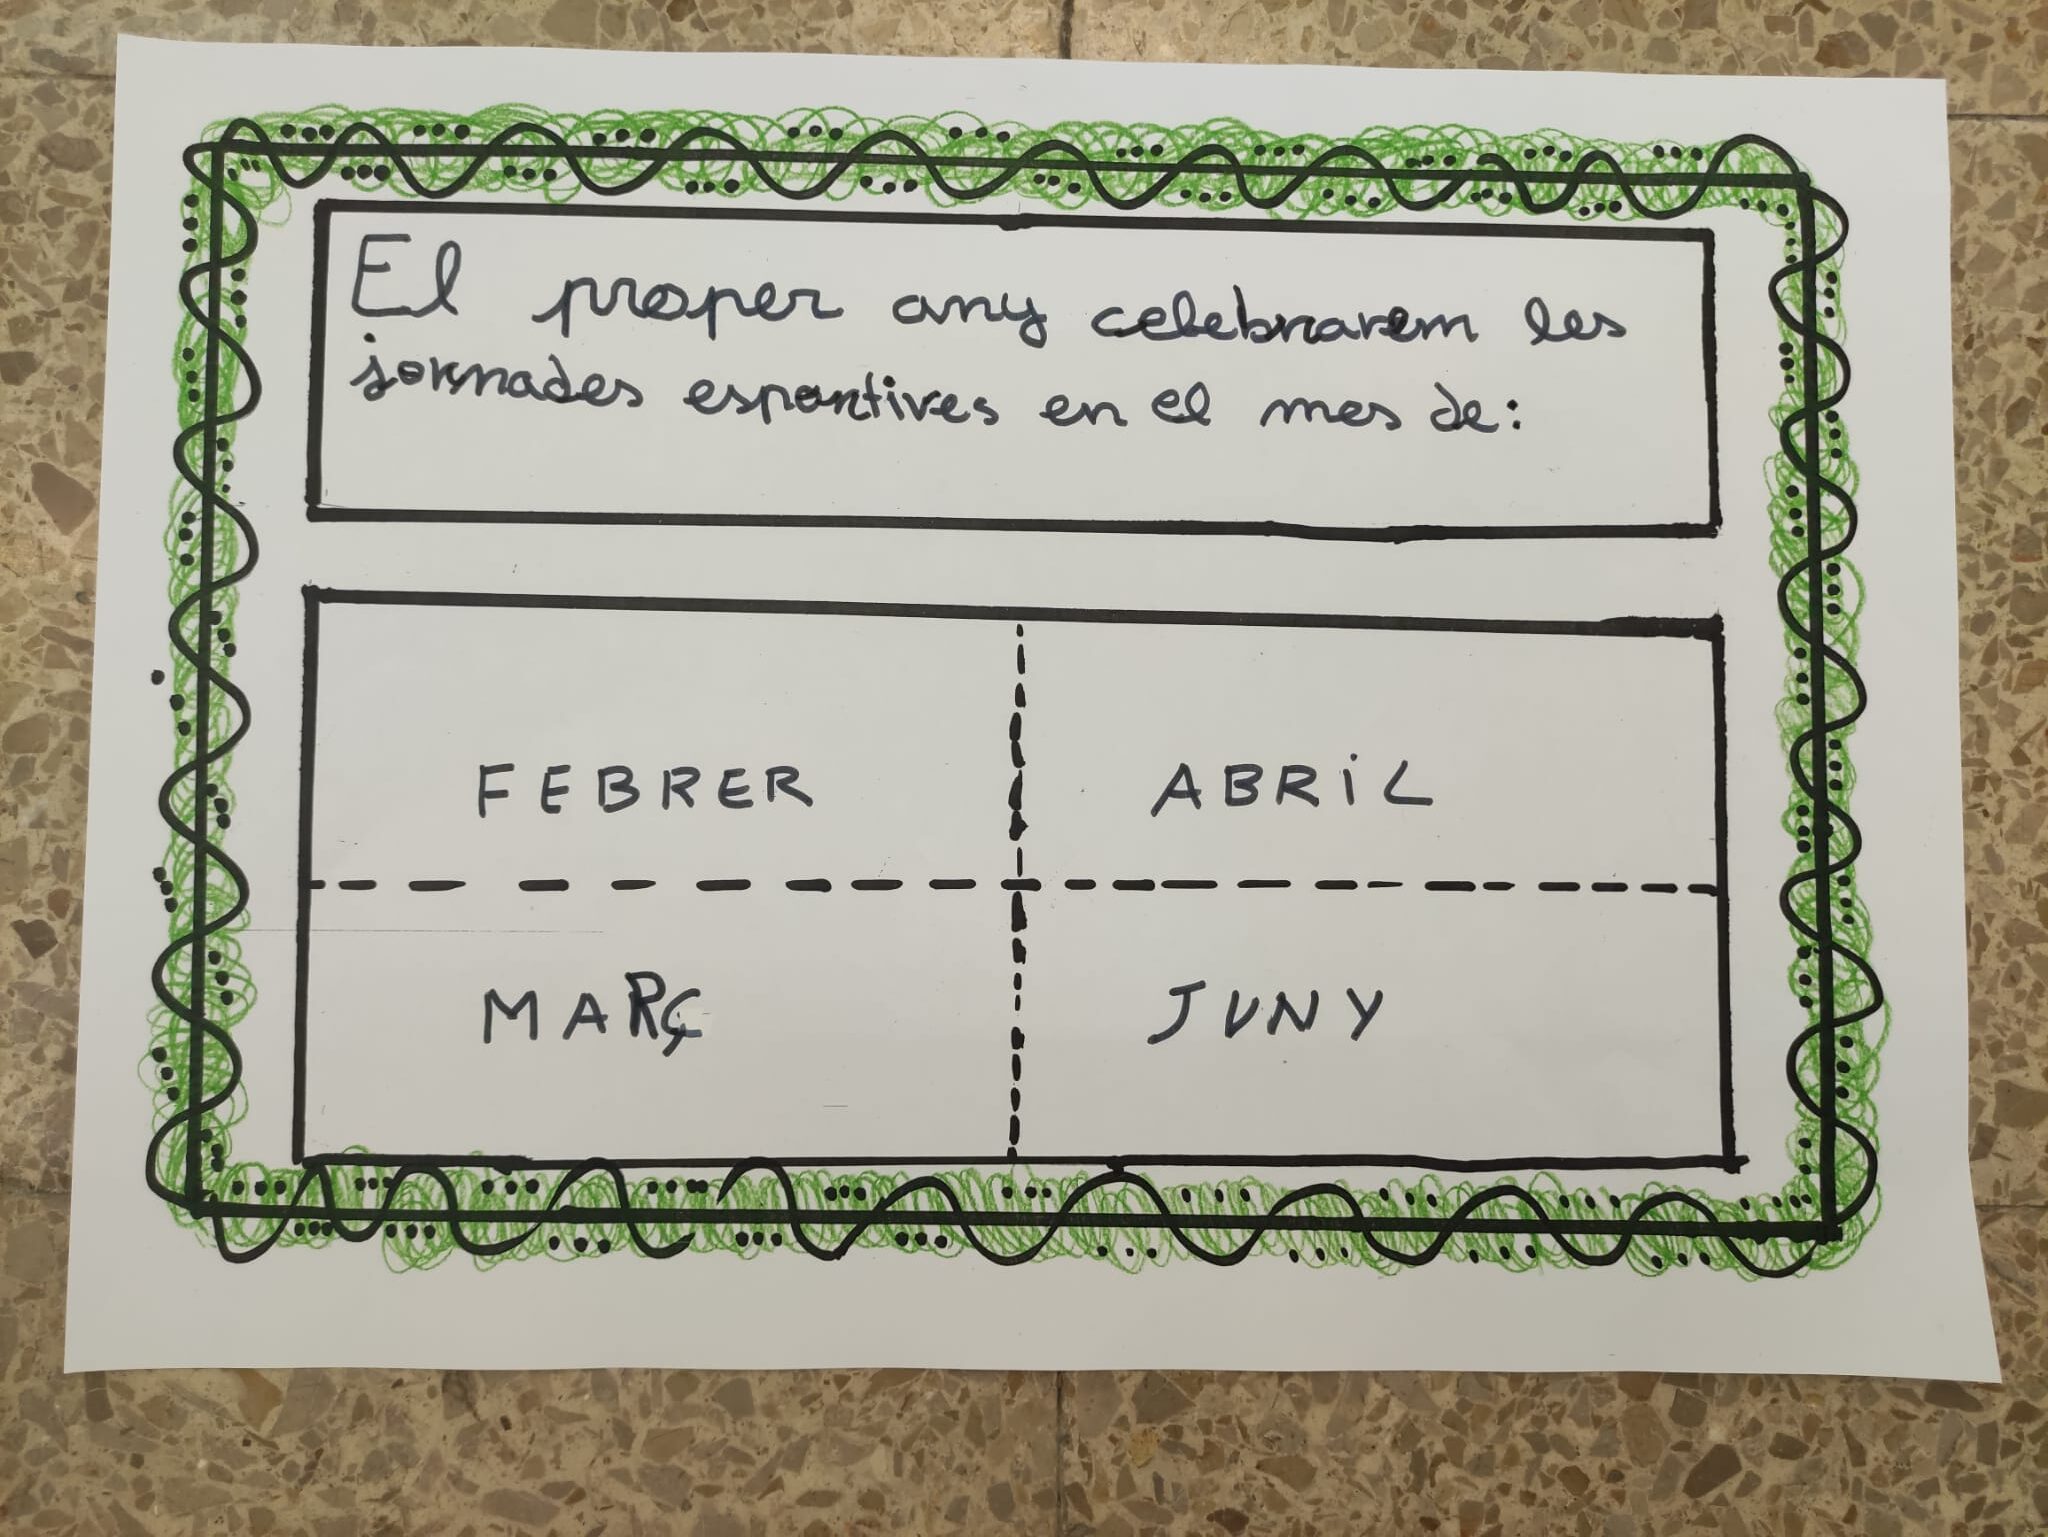 El proper any celebrarem les
jornades esportives en el mes de:
FEBRER
ABRIL
MARÇ
JUNY